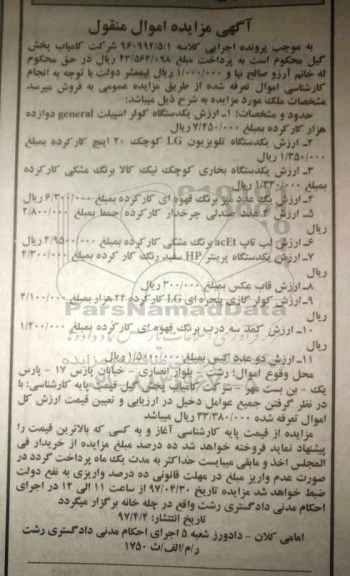 آگهی مزایده اموال منقول
به موجب پرونده اجرایی کلاسه ۹۶۰۹۹۲/۵/۱ شرکت کامیاب پخش
گیل محکوم است به پرداخت مبلغ ۴۲/۵۶۲/۰۹۸ ریال در حق محکوم
له خانم آرزو صالح نیا و ۱/۰۰۰/۰۰۰ ریال نیمعشر دولت با توجه به انجام
کارشناسی اموال تعرفه شده از طریق مزایده عمومی به فروش میرسد
مشخصات ملک مورد مزایده به شرح ذیل میباشد:
حدود و مشخصات: ۱- ارزش یکدستگاه کولر اسپیلت general دوازده
هزار کارکرده بمبلغ ۷/۲۵۰/۰۰۰ ریال
۲- ارزش یکدستگاه تلویزیون LG کوچک ۲۰ اینچ کارکرده بمبلغ
۱/۳۵۰/۰۰۰ ریال
۳- ارزش یکدستگاه بخاری کوچک نیک کالا برنگ مشکی کارکرده
بمبلغ ۱/۳۳۰/۰۰۰ ریال
۴- ارزش یک عدد میز برنگ قهوه ای کارکرده بمبلغ ۶/۳۰۰/۰۰۰ ریال
۵- ارزش ۴ عدد صندلی چرخدار کارکرده جمعا بمبلغ ۲/۸۰۰/۰۰۰
ریال
۶- ارزش لپ تاپ acEt برنگ مشکی کارکرده بمبلغ ۴/۹۵۰۰/۰۰۰ ریال
۷- ارزش یکدستگاه پرینتر HP سفید رنگ کار کرده بمبلغ ۲/۳۰۰/۰۰۰
ریال
۸- ارزش قاب عکس بمبلغ ۳۰۰/۰۰۰ ریال
۹- ارزش کولر گازی پنجره ای LG کارکرده ۲۴ هزار بمبلغ ۴/۱۰۰/۰۰۰
ریال
ParsNamadData
۱۰- ارزش کمد سه درب برنگ قهوه ای کارکرده بمبلغ ۱/۲۰۰/۰۰۰
ریال
۱۱- ارزش دو عدد کیس بمبلغ ۱/۵۰۰/۰۰۰ ریال
محل وقوع اموال: رشت - بلوار انصاری - خیابان پارس ۱۷ - پارس
یک - بن بست مهر - شرکت کامیاب پخش گیل قیمت پایه کارشناسی: با
در نظر گرفتن جمیع عوامل دخیل در ارزیابی و تعیین قیمت ارزش کل
اموال تعرفه شده ۳۳/۳۸۰/۰۰۰ ریال میباشد
مزایده از قیمت پایه کارشناسی آغاز و به کسی که بالاترین قیمت را
پیشنهاد نماید فروخته خواهد شد ده درصد مبلغ مزایده از خریدار فی
المجلس اخذ و مابقی میبایست حداکثر به مدت یک ماه پرداخت گردد در
صورت عدم واریز مبلغ در مهلت قانونی ده درصد واریزی به نفع دولت
ضبط خواهد شد مزایده تاریخ ۹۷/۰۴/۳۰ از ساعت ۱۱ الی ۱۲ در اجرای
احکام مدنی دادگستری رشت واقع در چله خانه برگزار میگردد
تاریخ انتشار: ۹۷/۴/۴
امامی کلان - دادورز شعبه ۵ اجرای احکام مدنی دادگستری رشت
ر/م/الف/ث ۱۷۵۰